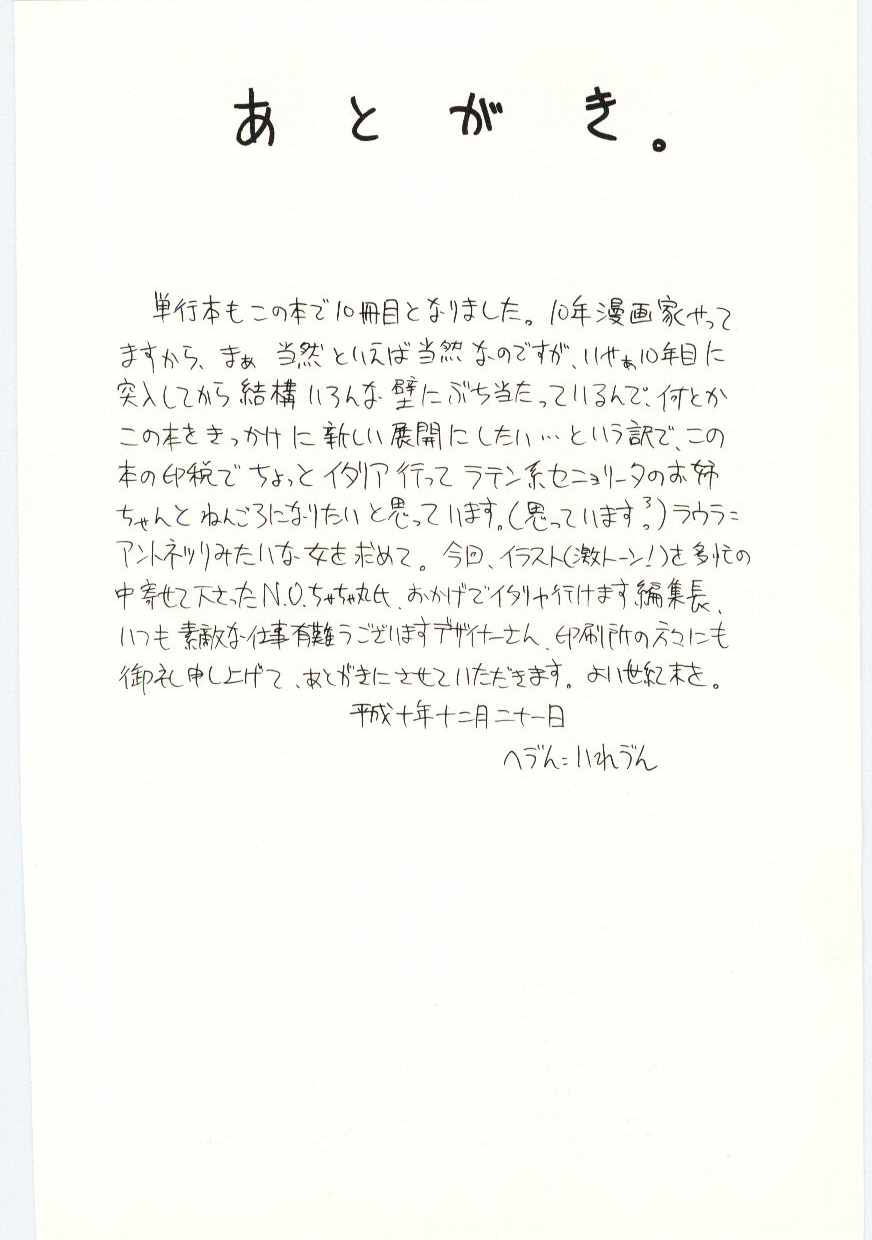 あとがき。
単行本もこの本で10冊目となりました。10年漫画家やって
ますから、まぁ 当然といえば当然なのですが、いやぁ10年目に
突入してから結構いろんな壁にぶち当たっているんで、何とか
この本をきっかけに新しい展開にしたい…という訳で、この
本の印税でちょっとイタリア行ってラテン系セニョリータのお姉
ちゃんとねんごろになりたいと思っています。(思っています?)ラウラ=
アントネッリみたいな女を求めて。今回、イラスト(激トーン!)を多忙の
中寄せて下さったN.O.ちゃちゃ丸氏、おかげでイタリヤ行けます編集長、
いつも素敵な仕事有難うございますデザイナーさん、印刷所の方々にも
御礼申し上げて、あとがきにさせていただきます。よい世紀末を。
平成十年十二月二十一日
へづん=いれづん